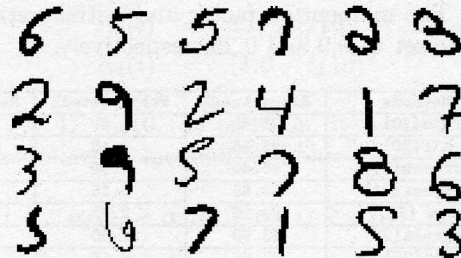 6 5 5 7 2 3
2 9 2 4 1 7
3 9 5 7 8 6
5 6 7 1 5 3